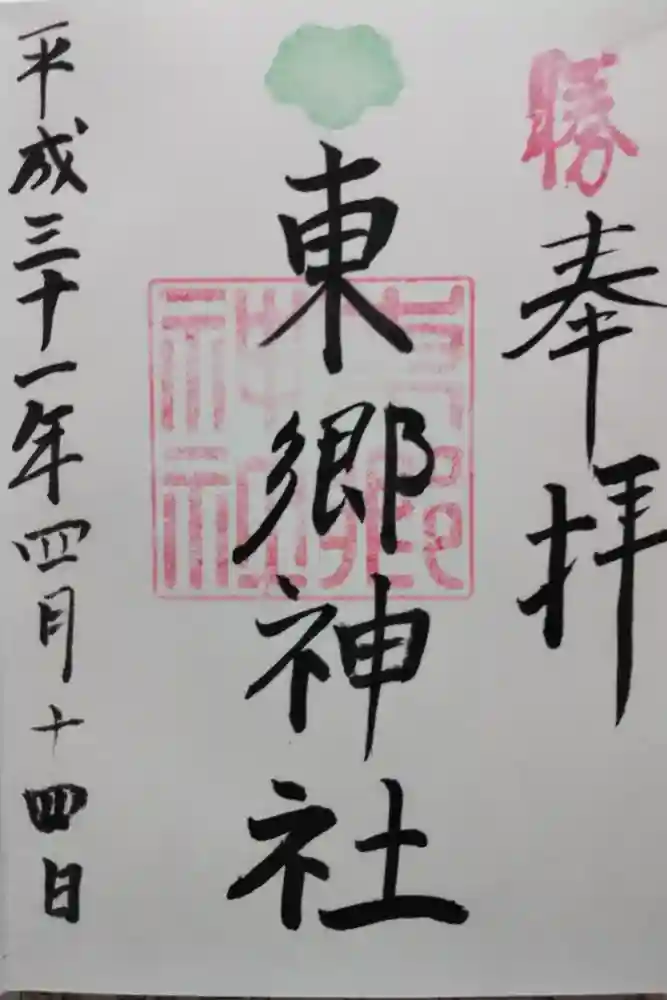 勝
奉拝
東郷神社
東郷神社
平成三十一年四月十四日